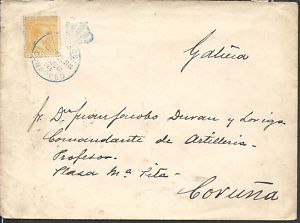 Galicia
Sr. Dn. Juan Jacobo Duran y Loriga
Comandante de Artilleria.
Profesor.
Plaza Mª Pita.
Coruña